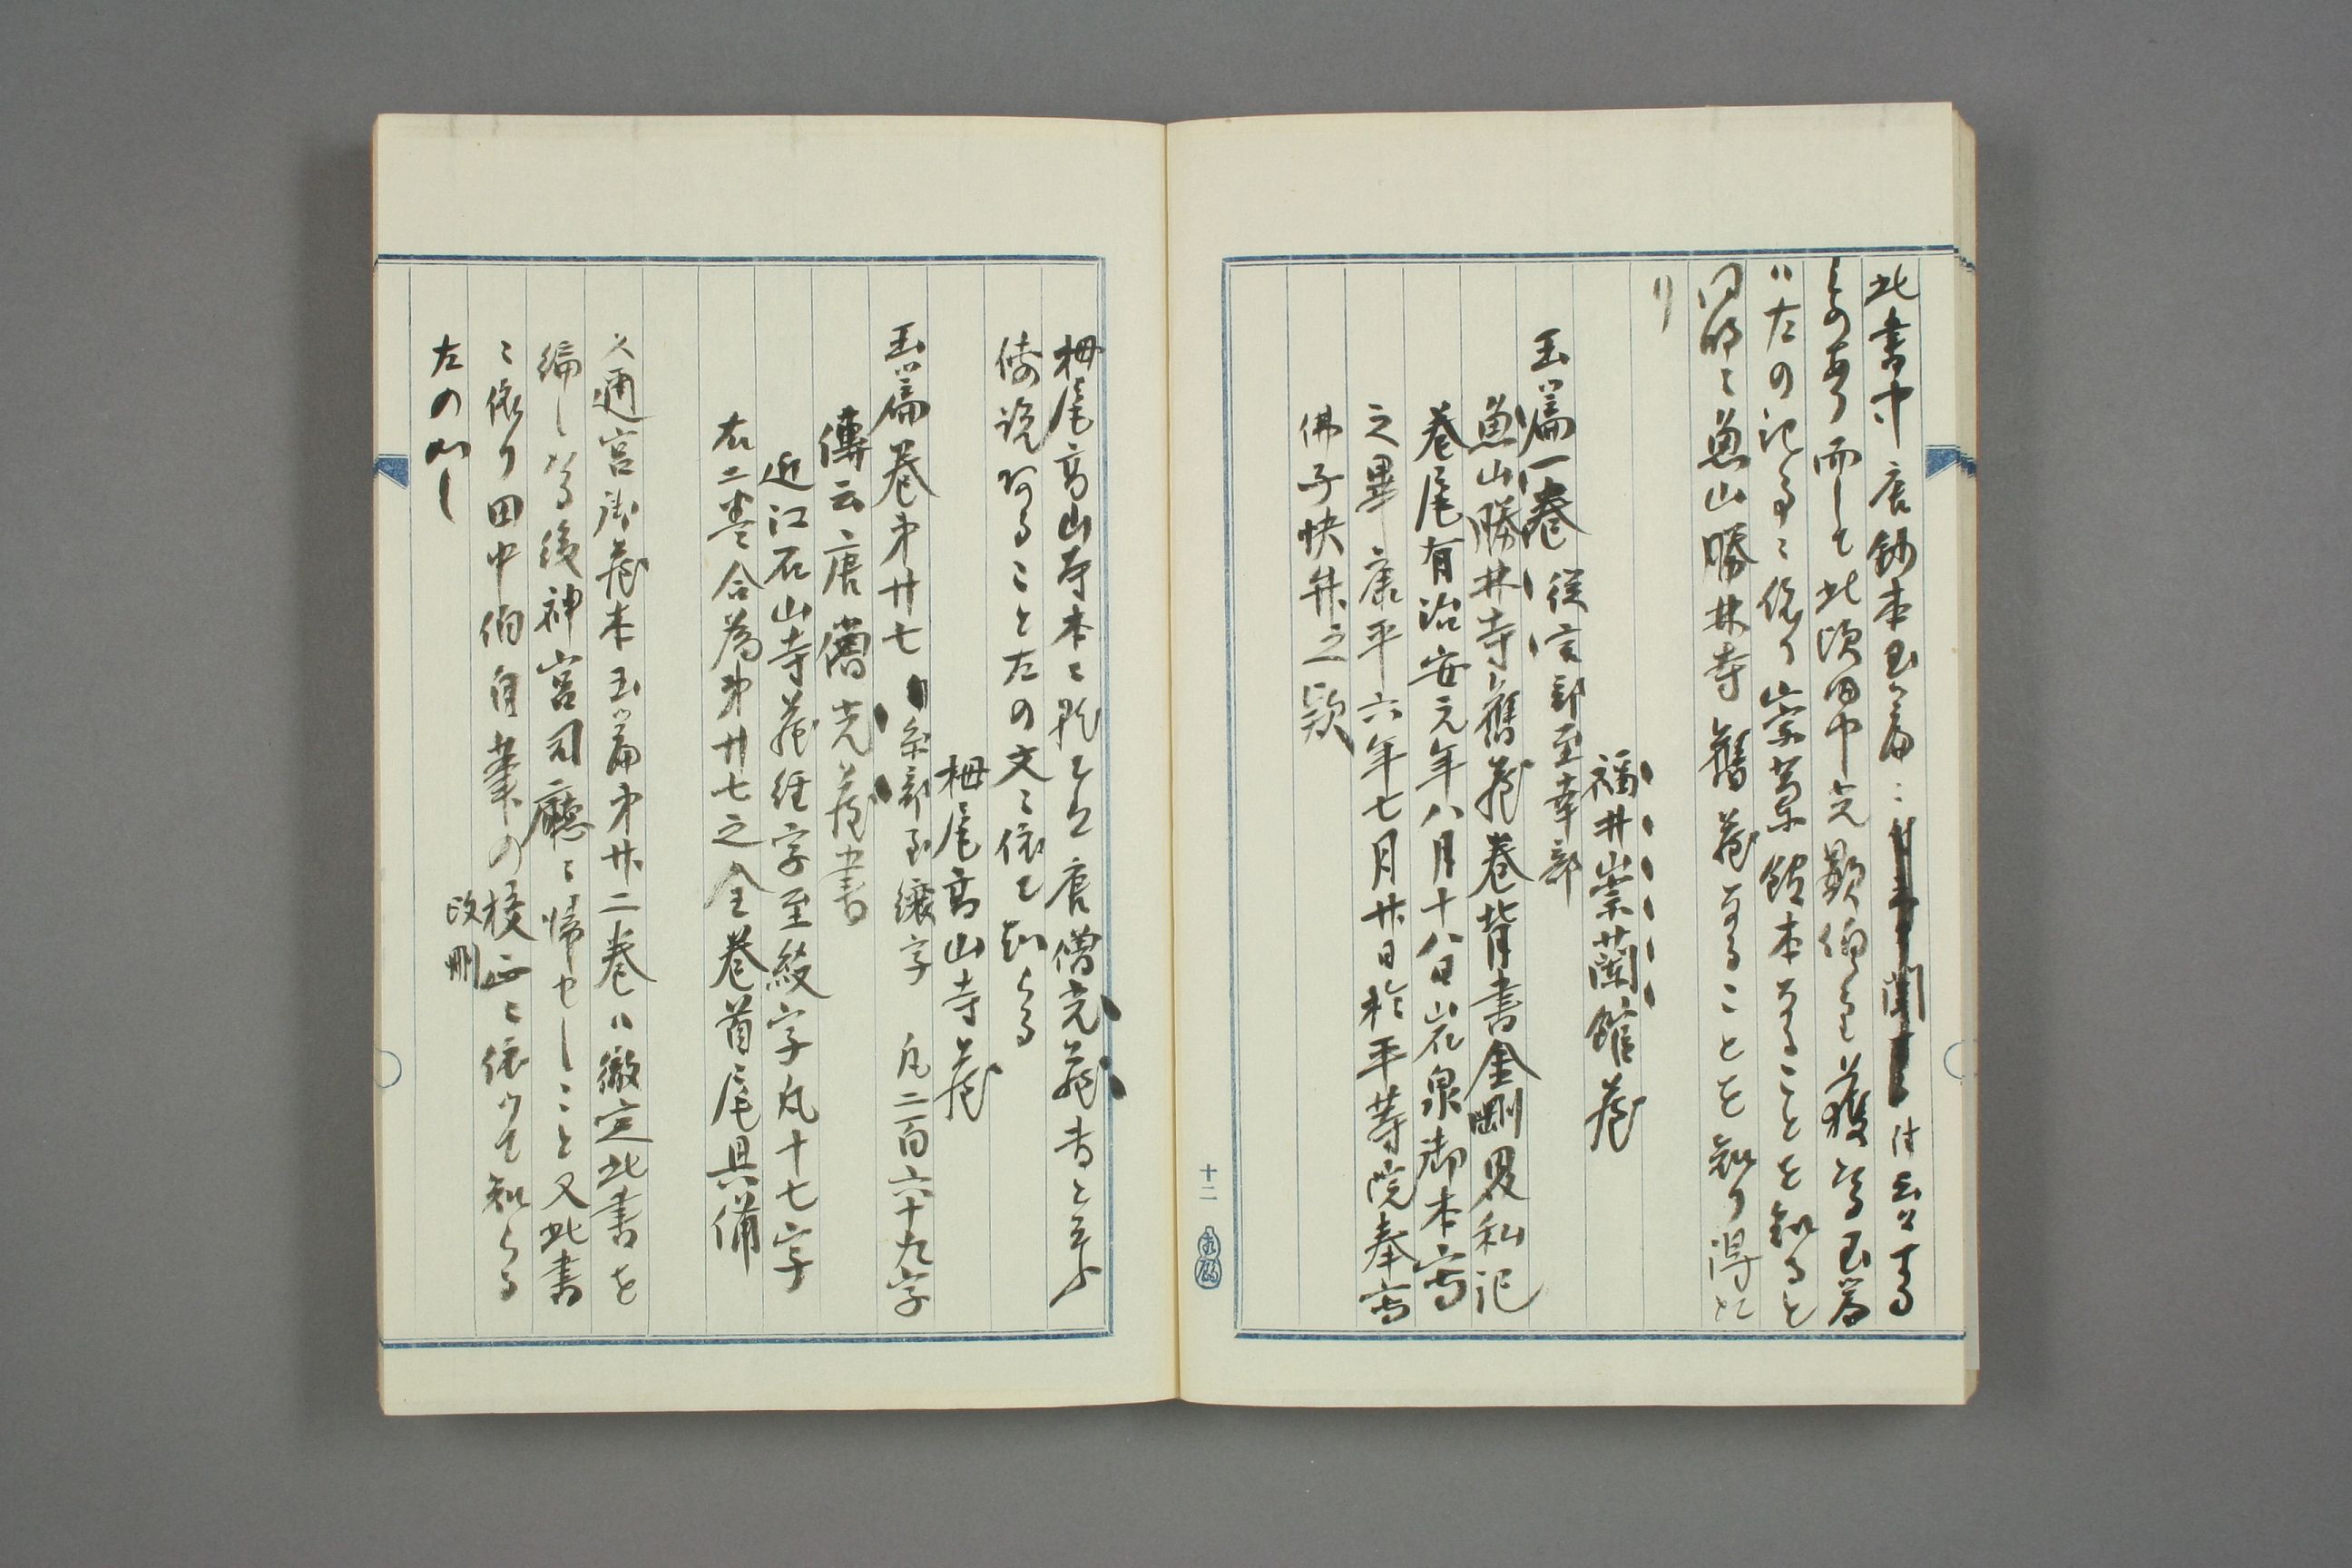 此書中唐鈔本玉篇ニ付云々する
ものあり而して此頃田中光顕伯より獲たる玉篇
ハ左の記事ニ依り崇蘭館本なることを知ると
同時ニ魚山勝林寺舊蔵なることを知り得た
り
福井崇蘭館蔵
玉篇一巻 従言部至幸部
魚山勝林寺舊蔵巻背書金剛界私記
巻尾有治安元年八月十八日岩泉御本寫
之畢 康平六年七月廿日於平等院奉寫
佛子快算之跋
十二
栂尾高山寺本ニ就て又唐僧光蔵書と云ふ
傳説ある こと左の文ニ依て知らる
栂尾高山寺蔵
玉篇巻第廿七 糸部至纕字 凡二百六十九字
傳云唐僧光蔵書
近江石山寺蔵経字至紋字凡十七字
右二巻合為第廿七之全巻首尾具備
又通宮御蔵本玉篇第廿二巻ハ徴定此書を
編したる後神宮司廳ニ帰せしこと又此書
ニ依り田中伯自筆の校正ニ依りて知らる
左の如し
改刪